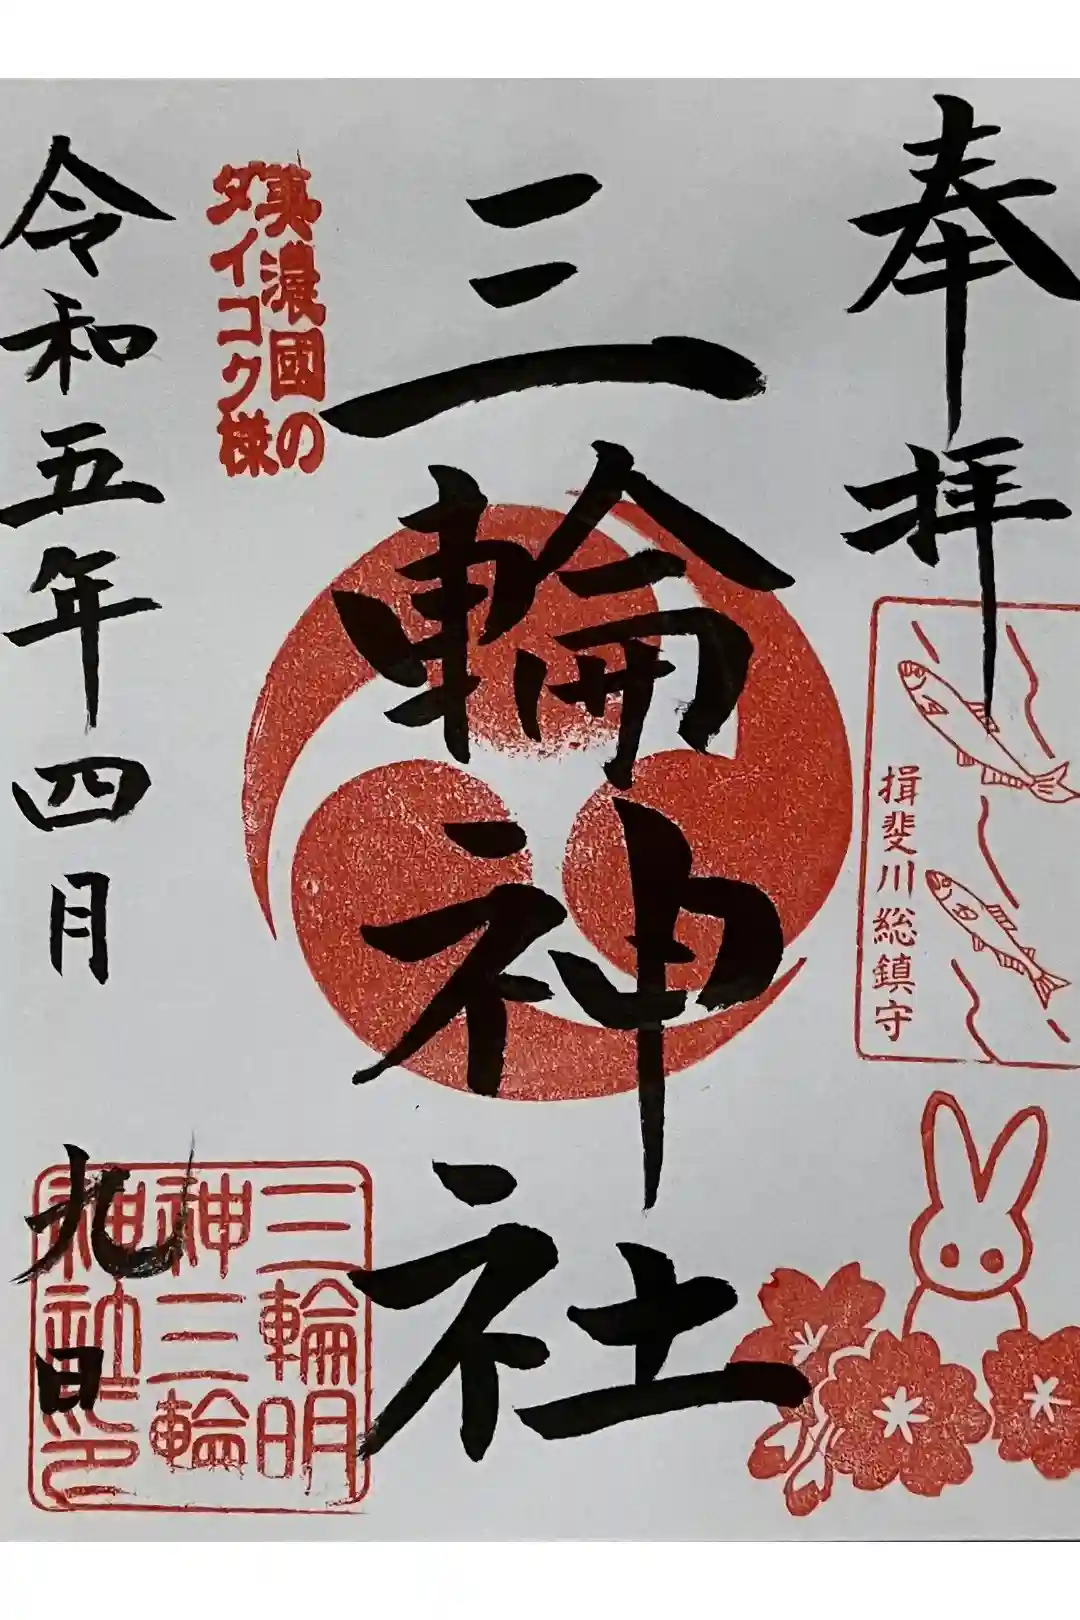 奉拝
揖斐川総鎮守
三輪神社
美濃國の
ダイコク様
三輪明
神三輪
神社印
令和五年四月九日